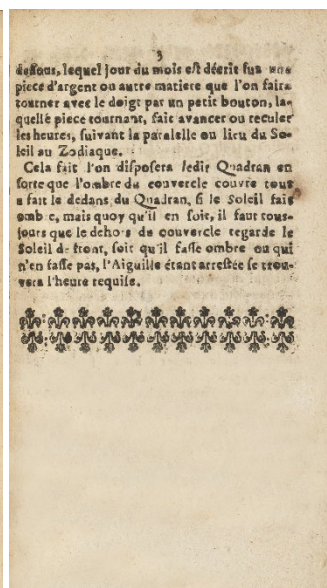 3
dessous, lequel jour du mois est décrit sur une
piece d'argent ou autre matiere que l'on faira
tourner avec le doigt par un petit bouton, la-
quelle piece tournant, fait avancer ou reculer
les heures, suivant la paralelle ou lieu du So-
leil au Zodiaque.
Cela fait l'on disposera ledit Quadran en
sorte que l'ombre du couvercle couvre tout
a fait le dedans du Quadran, si le Soleil fait
ombre, mais quoy qu'il en soit, il faut tous-
jours que le dehors de couvercle regarde le
Soleil de front, soit qu'il fasse ombre ou qui
n'en fasse pas, l'Aiguille étant arrestée se trou-
vera l'heure requise.